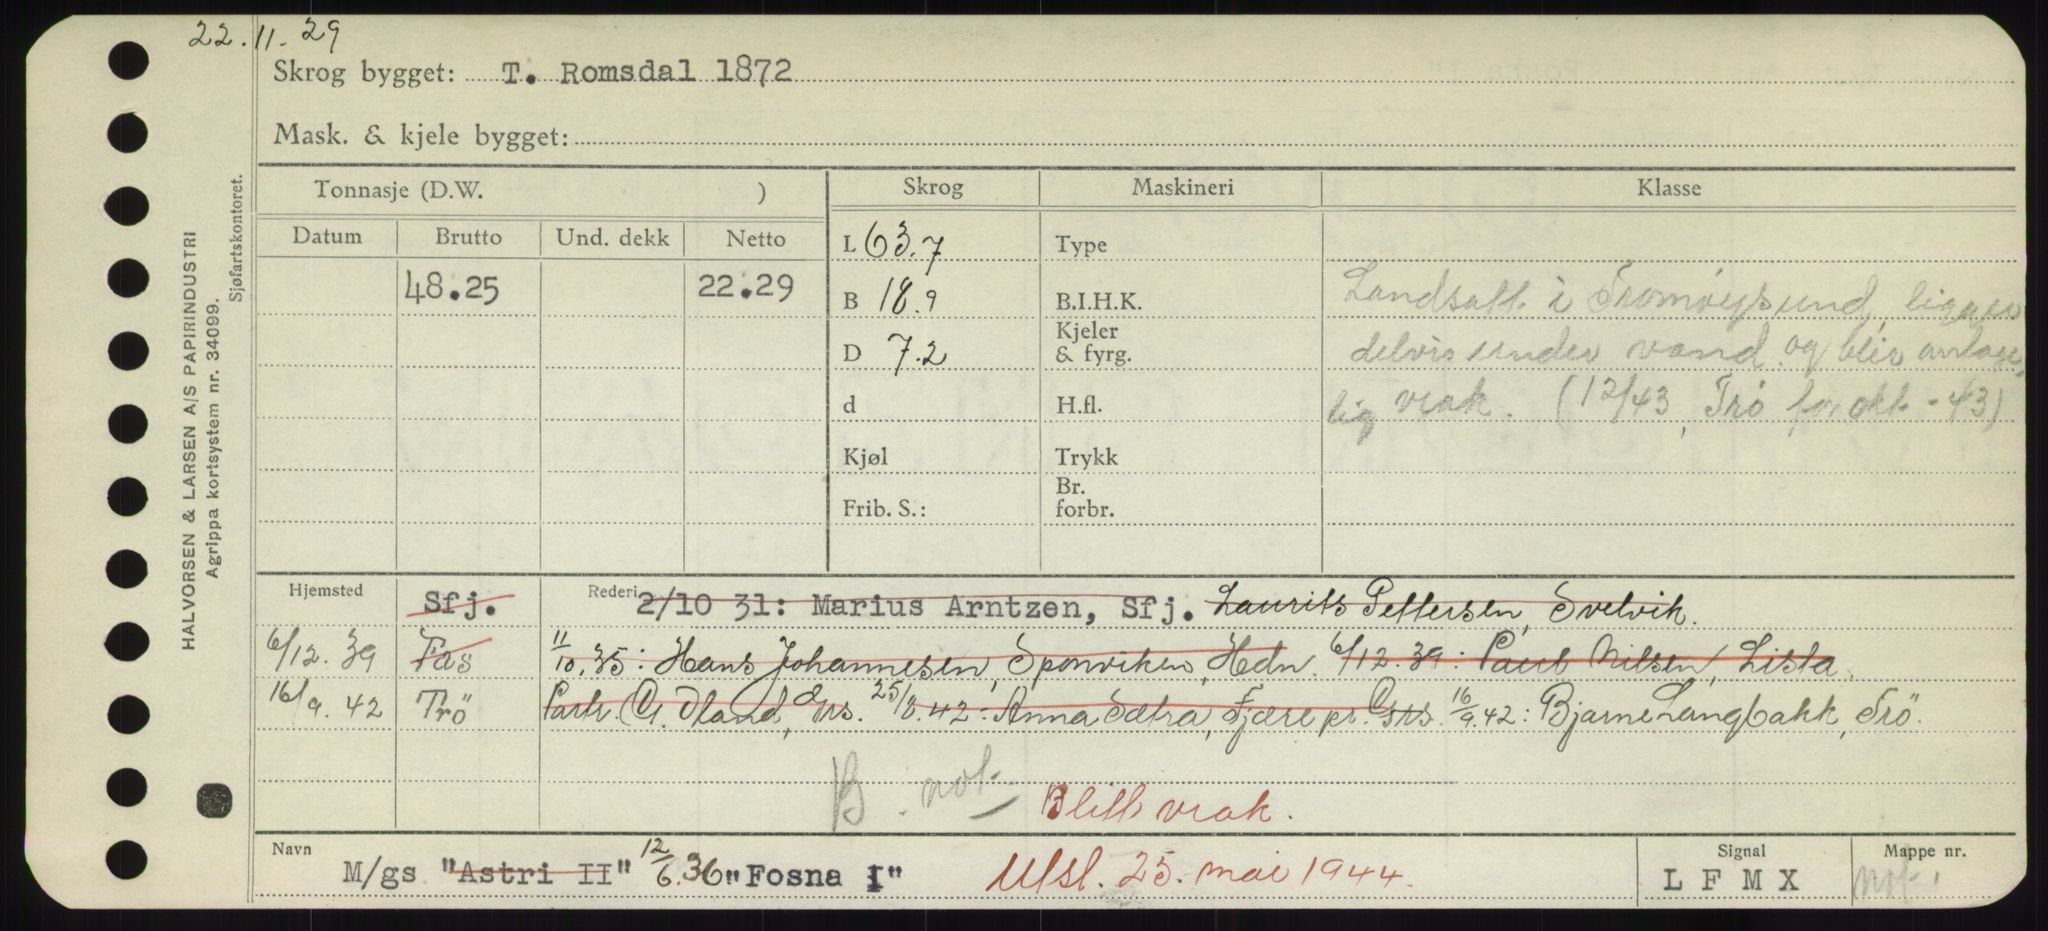 22.11.29
Skrog bygget: T. Romsdal 1872
Mask. & kjele bygget:
HALVORSEN & LARSEN A/S PAPIRINDUSTRI
Agrippa kortsystem nr. 34099.
Sjøfartskontoret.
Tonnasje (D.W. ) Skrog Maskineri Klasse
Datum Brutto Und. dekk Netto
48.25 22.29
L 63.7
B 18.9
D 7.2
d
Kjøl
Frib. S.:
Type
B.I.H.K.
Kjeler
& fyrg.
H.fl.
Trykk
Br.
forbr.
Landsatt i Tromøysund, ligger
delvis under vand og blir antage-
lig vrak. (12/43, Trö for okt -43)
Hjemsted Sfj. Rederi 2/10 31: Marius Arntzen, Sfj. Laurits Pettersen, Svelvik.
6/12.39 Fas 11/10.35: Hans Johannesen, Sponviken, Hdn. 6/12.39: Paul Nilsen, Lista.
16/9.42 Trö Partr. Øland, 42: Anna Sætra, Fjære pr. Grs. 16/9.42: Bjarne Langbakk, Trö.
B. not
Blitt vrak.
Navn M/gs "Astri II" 12/6.36 "Fosna I" Utsl. 25. mai 1944.
Signal L F M X
Mappe nr. not.